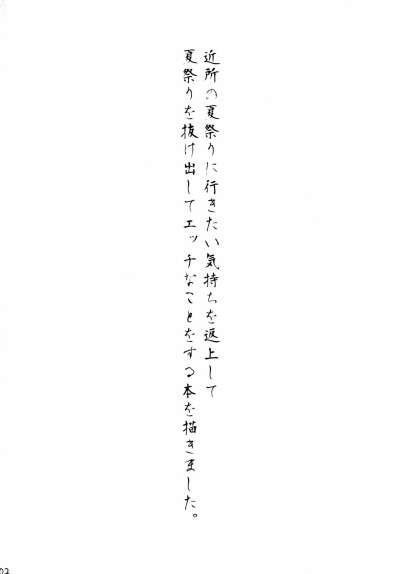 近所の夏祭りに行きたい気持ちを返上して
夏祭りを抜け出してエッチなことをする本を描きました。
02